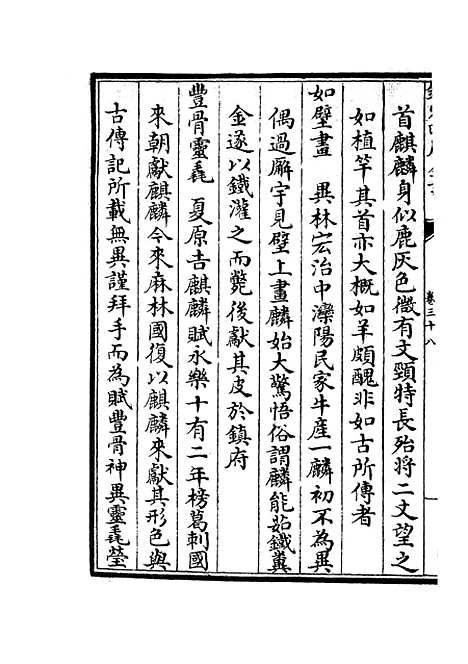 卷三十八
首麒麟身似鹿灰色微有文頸特長殆將二丈望之
如植竿其首亦大概如羊頗醜非如古所傳者
如壁畫　異林宏治中灤陽民家牛産一麟初不為異
偶過廨宇見壁上畫麟始大驚悟俗謂麟能茹鐵糞
金遂以鐵灌之而斃後獻其皮於鎮府
豐骨靈毳　夏原吉麒麟賦永樂十有二年榜葛剌國
來朝獻麒麟今來麻林國復以麒麟來獻其形色與
古傳記所載無異謹拜手而為賦豐骨神異靈毳瑩